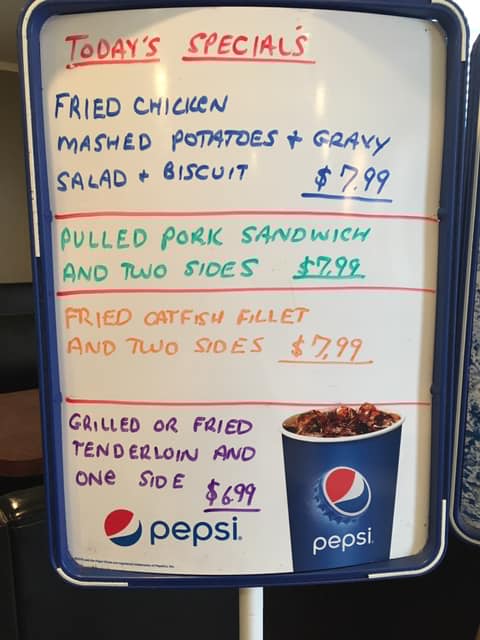 TODAY'S SPECIALS
FRIED CHICKEN
MASHED POTATOES + GRAVY
SALAD + BISCUIT $7.99
PULLED PORK SANDWICH
AND TWO SIDES $7.99
FRIED CATFISH FILLET
AND TWO SIDES $7.99
GRILLED OR FRIED
TENDERLOIN AND
ONe SIDE
$6.99
pepsi.
pepsi.